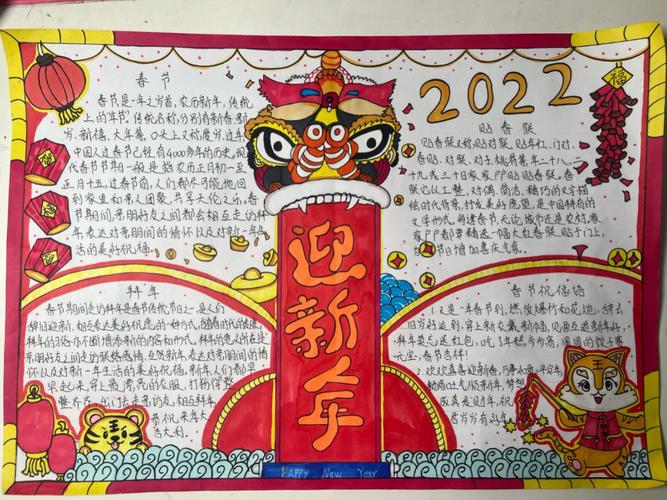 春节
春节是一年之岁首,农历新年,传统
上的年节。传统名称,分别有新春、新
岁、新禧、大年等,口头上又称度岁,过年
中国人过春节已经有4000多年的历史。现
代春节节期一般是指农历正月初一至
正月十五。过春节前,人们都尽可能地回
到家里和亲人团聚,共享天伦之乐。春
节期间,亲朋好友之间都会相互走访拜
年,表达对亲朋间的情怀以及对新一年生
活的美好祝福。
2022
福
贴春联
贴春联又称贴对联,贴年红、门对、
春贴、对联、对子
二十八、二
十九或三十日家家户户贴贴春联。春
联它以工整、对偶、简洁、精巧的文字描
绘时代背景,抒发美好愿望,是中国特有的
文学形式。每逢春节,无论城市还是农村,家
家户户都要精选一幅大红春联贴于门上,
节日增加喜庆气氛。
迎新年
拜年
春节期间走访拜年是春节传统节日之一,是人们
辞旧迎新、相互表达美好祝愿的一种方式。随着时代的发展,
拜年的习俗亦不断增添新的内容和形式。拜年的意义所在是
亲朋好友之间走访联络感情、互贺新年,表达对亲朋间的情
怀以及对新一年生活的美好祝福。新年,人们都早
早起来,穿上最漂亮的衣服,打扮得整
整齐齐,出门去走亲访友,相互拜年
恭祝来年大
吉大利
春节祝福语
1.又是一年春节到,燃放爆竹和花炮,辞去
旧岁好运到,穿上新衣戴新帽,见面互道新年好,
拜年莫忘送红包,吃了年糕步步高,圆圆的饺子赛
元宝,春节吉祥!
2.欢欢喜喜迎新春,万事如意
王
王
福
Happy New Year